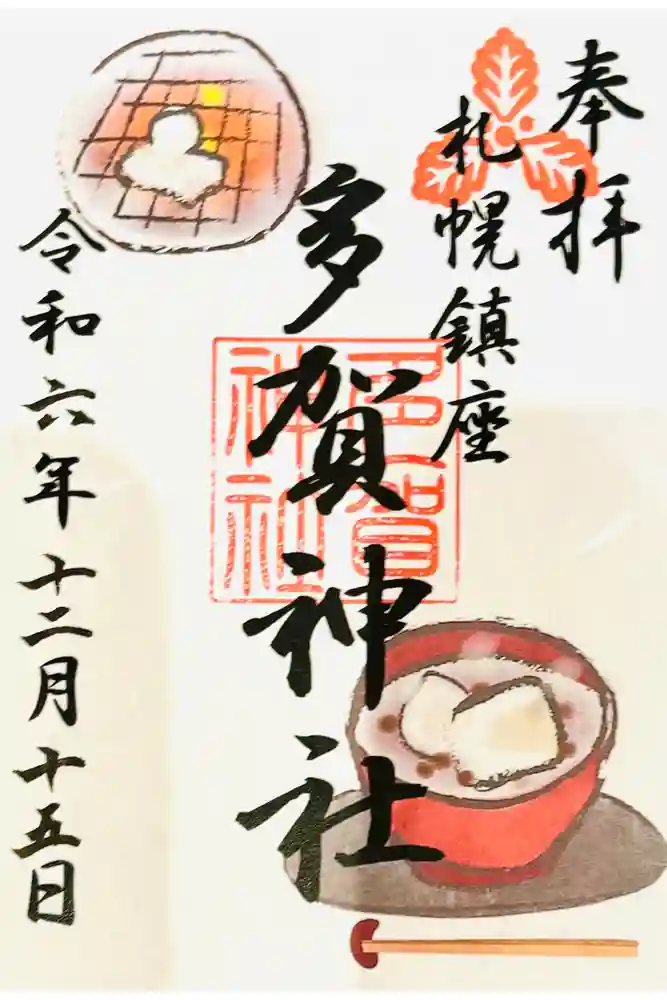 奉拝
札幌鎮座
多賀神社
多賀
神社
令和六年十二月十五日